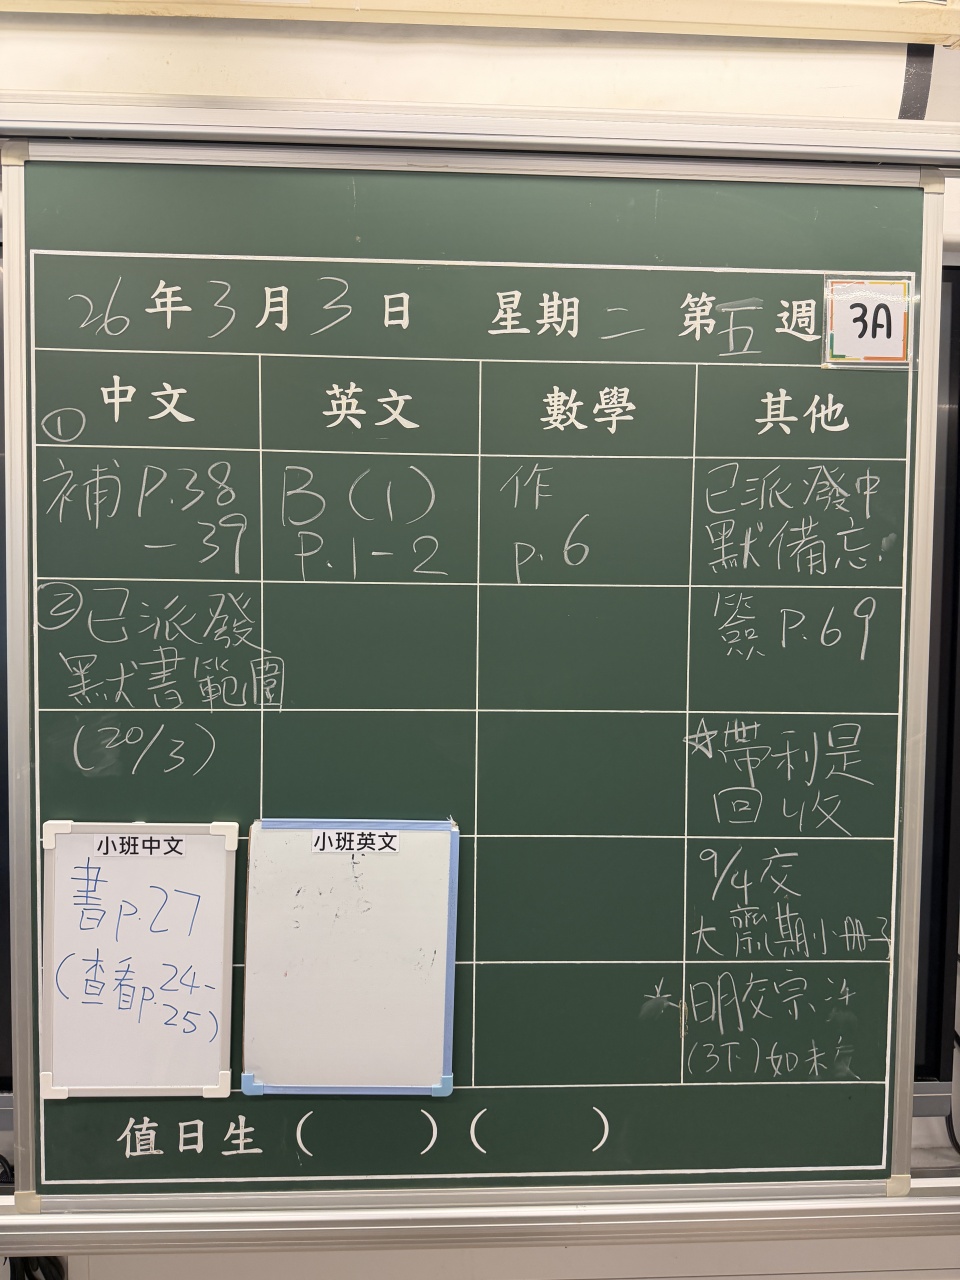 26年3月3日 星期二 第五週 3A
中文 英文 數學 其他
①
補 P.38
-39
B(1)
P.1-2
作
p.6
已派發中
默備忘
②已派發
默書範圍
簽 P.69
(20/3)
☆帶利是
回收
小班中文
書p.27
(查看p.24-
25)
小班英文
9/4交
大齋期小冊子
*明交宗
(3下)如未
值日生( )( )